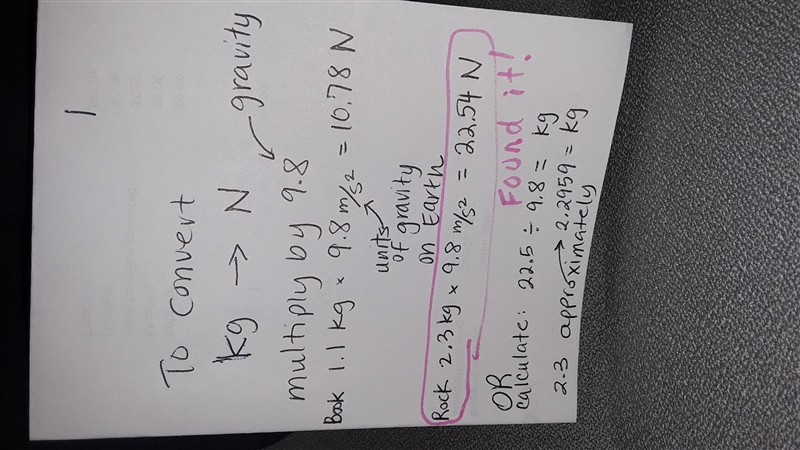 To convert
kg → N
multiply by 9.8 ← gravity
Book 1.1 kg × 9.8 m/s² = 10.78 N
units
of gravity
on Earth
Rock 2.3 kg × 9.8 m/s² = 22.54 N
OR
Found it!
calculate: 22.5 ÷ 9.8 = kg
2.3 ← 2.2959 = kg
approximately